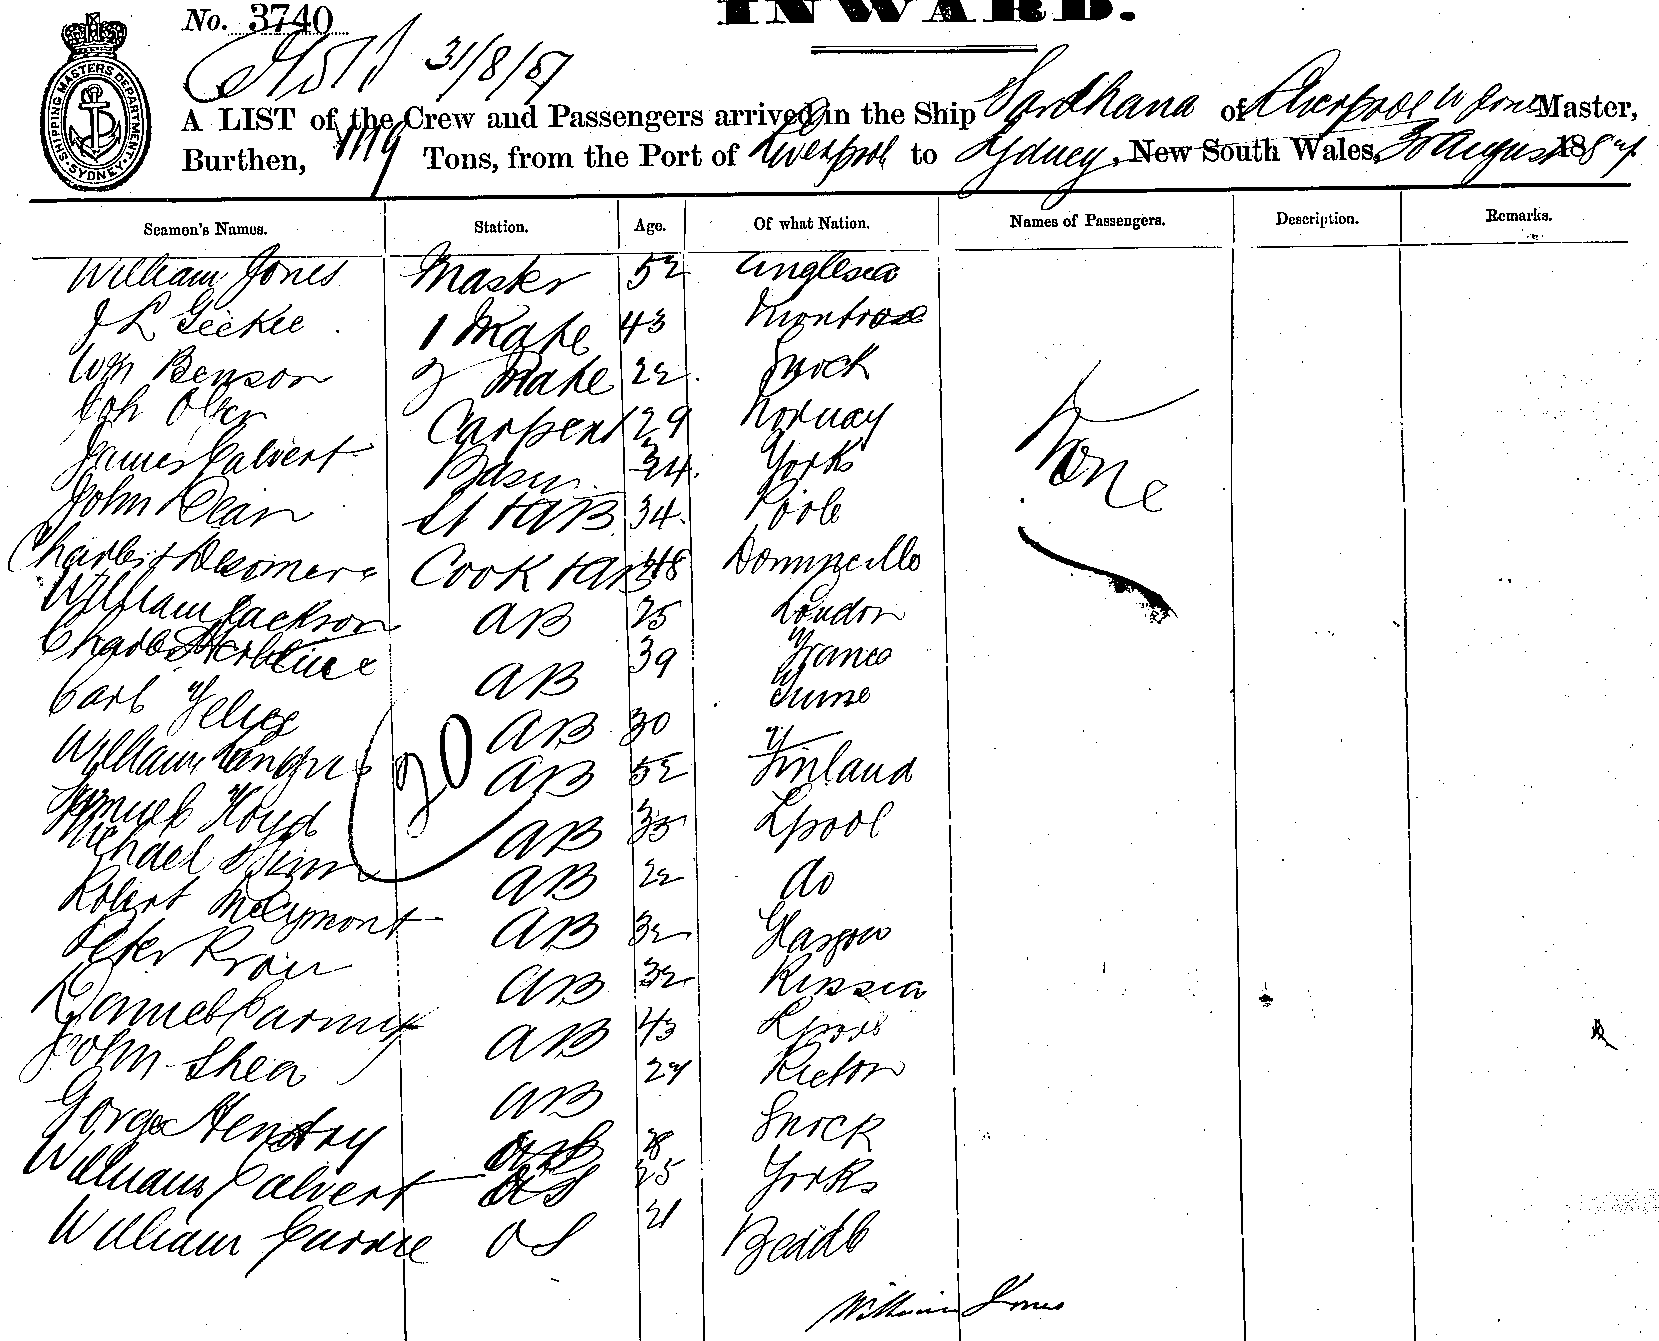 No. 3740
INWARD.
SHIPPING MASTERS DEPARTMENT SYDNEY
31/8/87
A LIST of the Crew and Passengers arrived in the Ship Sardhana of Liverpool W Jones Master,
Burthen, Tons, from the Port of Liverpool to Sydney, New South Wales, 30 August 1887
Seamen's Names. Station. Age. Of what Nation. Names of Passengers. Description. Remarks.
William Jones Master 52 Anglesea
J L Geekie 1 Mate 43 Montrose
Wm Benson 2 Mate 22
Joh Olsen Carpent 29 Norway
James Calvert Bosn 34 Yorks
None
John Dean St & AB 34 Poole
Cook & AB 48
William Jackson AB 25 London
Charles AB 39 France
Carl AB 30 Fiume
William AB 52 Finland
20
Samuel Lloyd AB 35 Lpool
Michael AB 22 do
Robert McClymont AB 32 Glasgow
Peter AB 32 Russia
Daniel AB 43 Lpool
John Shea AB 27
George Hendry AB 28
William Calvert OS 25 Yorks
William Currie OS 21
William Jones